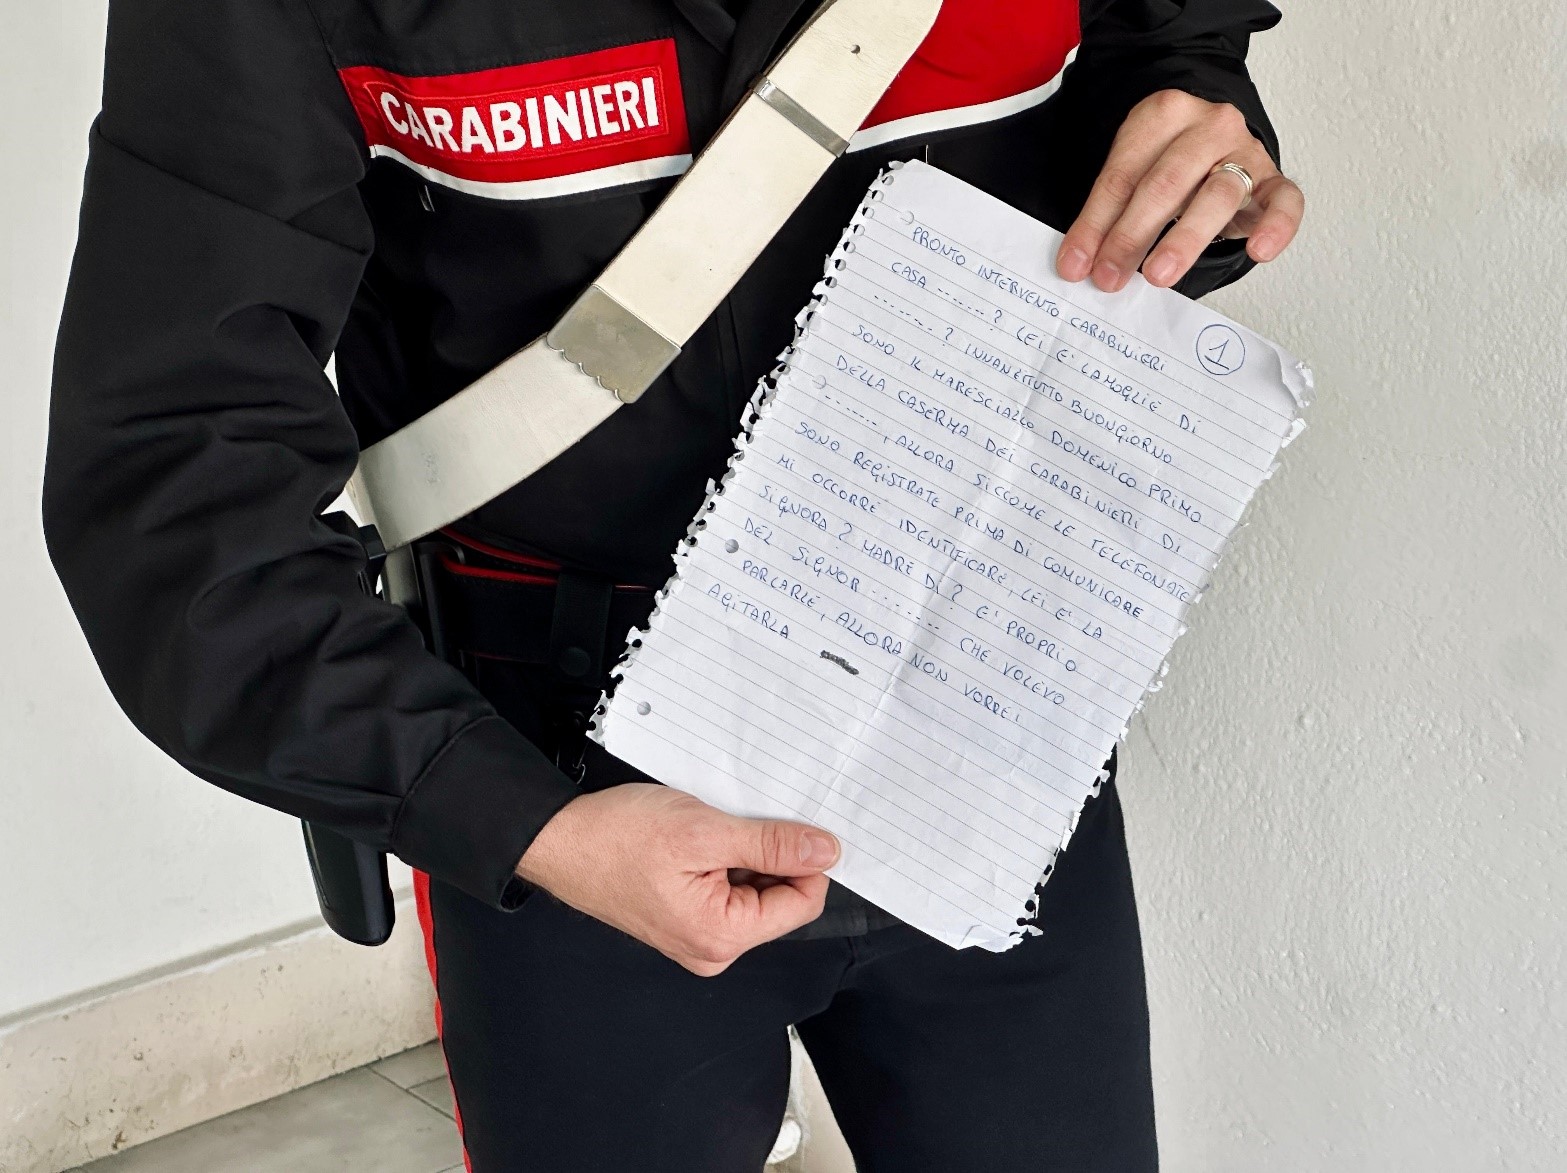 CARABINIERI
1
PRONTO INTERVENTO CARABINIERI
CASA ------? LEI E' LA MOGLIE DI
-------? INNANZITUTTO BUONGIORNO
SONO IL MARESCIALLO DOMENICO PRIMO
DELLA CASERMA DEI CARABINIERI DI
------, ALLORA SICCOME LE TELEFONATE
SONO REGISTRATE PRIMA DI COMUNICARE
MI OCCORRE IDENTIFICARE, LEI E' LA
SIGNORA ? MADRE DI ? E' PROPRIO
DEL SIGNOR ------- CHE VOLEVO
PARLARLE, ALLORA NON VORREI
AGITARLA